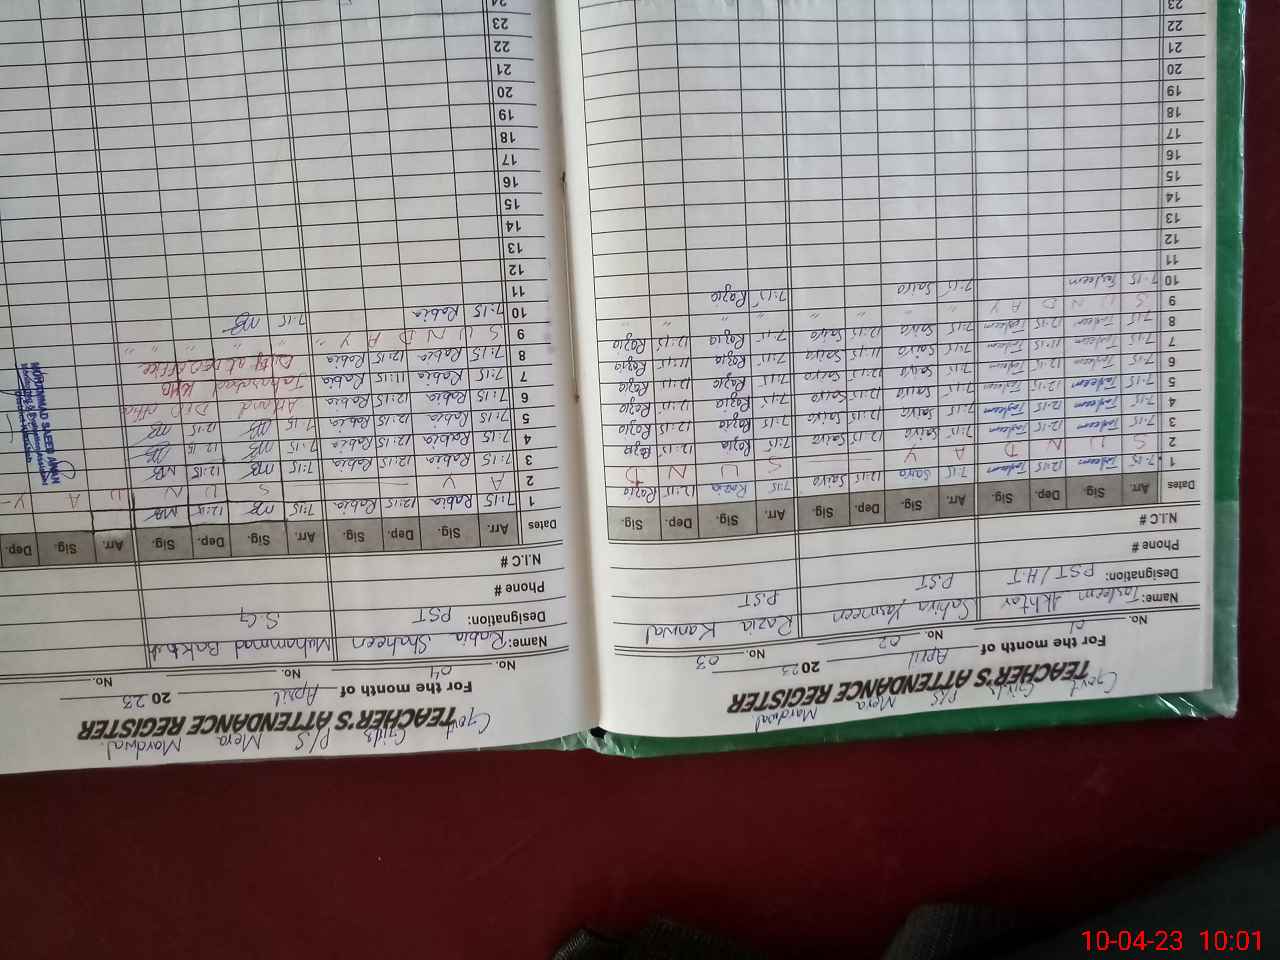 Govt Girls P/S Mera Mardwal
TEACHER'S ATTENDANCE REGISTER
For the month of April 2023
No. 01 No. 02 No. 03
Name: Tasleem Akhtar Sabira Yasmeen Razia Kanwal
Designation: PST/H.T PST PST
Phone #
N.I.C #
Dates Arr. Sig. Dep. Sig. Arr. Sig. Dep. Sig. Arr. Sig. Dep. Sig.
1 7:15 Tasleem 12:15 Tasleem 7:15 Saira 12:15 Saira 7:15 Razia 12:15 Razia
2 S U N D A Y S U N D
3 7:15 Tasleem 12:15 Tasleem 7:15 Saira 12:15 Saira 7:15 Razia 12:15 Razia
4 7:15 Tasleem 12:15 Tasleem 7:15 Saira 12:15 Saira 7:15 Razia 12:15 Razia
5 7:15 Tasleem 12:15 Tasleem 7:15 Saira 12:15 Saira 7:15 Razia 12:15 Razia
6 7:15 Tasleem 12:15 Tasleem 7:15 Saira 12:15 Saira 7:15 Razia 12:15 Razia
7 7:15 Tasleem 11:15 Tasleem 7:15 Saira 11:15 Saira 7:15 Razia 11:15 Razia
8 7:15 Tasleem 12:15 Tasleem 7:15 Saira 12:15 Saira 7:15 Razia 12:15 Razia
9 S U N D A Y " " " " " "
10 7:15 Tasleem 7:15 Saira 7:15 Razia
11
12
13
14
15
16
17
18
19
20
21
22
23
Govt Girls P/S Mera Mardwal
TEACHER'S ATTENDANCE REGISTER
For the month of April 2023
No. 04 No. No.
Name: Rabia Shaheen Muhammad Bakhsh
Designation: PST S.G
Phone #
N.I.C #
Dates Arr. Sig. Dep. Sig. Arr. Sig. Dep. Sig. Arr. Sig. Dep.
1 7:15 Rabia 12:15 Rabia 7:15 MB 12:15 MB
2 A Y S U N D A Y
3 7:15 Rabia 12:15 Rabia 7:15 MB 12:15 MB
4 7:15 Rabia 12:15 Rabia 7:15 MB 12:15 MB
5 7:15 Rabia 12:15 Rabia 7:15 MB 12:15 MB
6 7:15 Rabia 12:15 Rabia Attend office
7 7:15 Rabia 11:15 Rabia
8 7:15 Rabia 12:15 Rabia Duty at DEO office
9 S U N D A Y " " " "
10 7:15 Rabia 7:15 MB
11
12
13
14
15
16
17
18
19
20
21
22
23
24
10-04-23 10:01